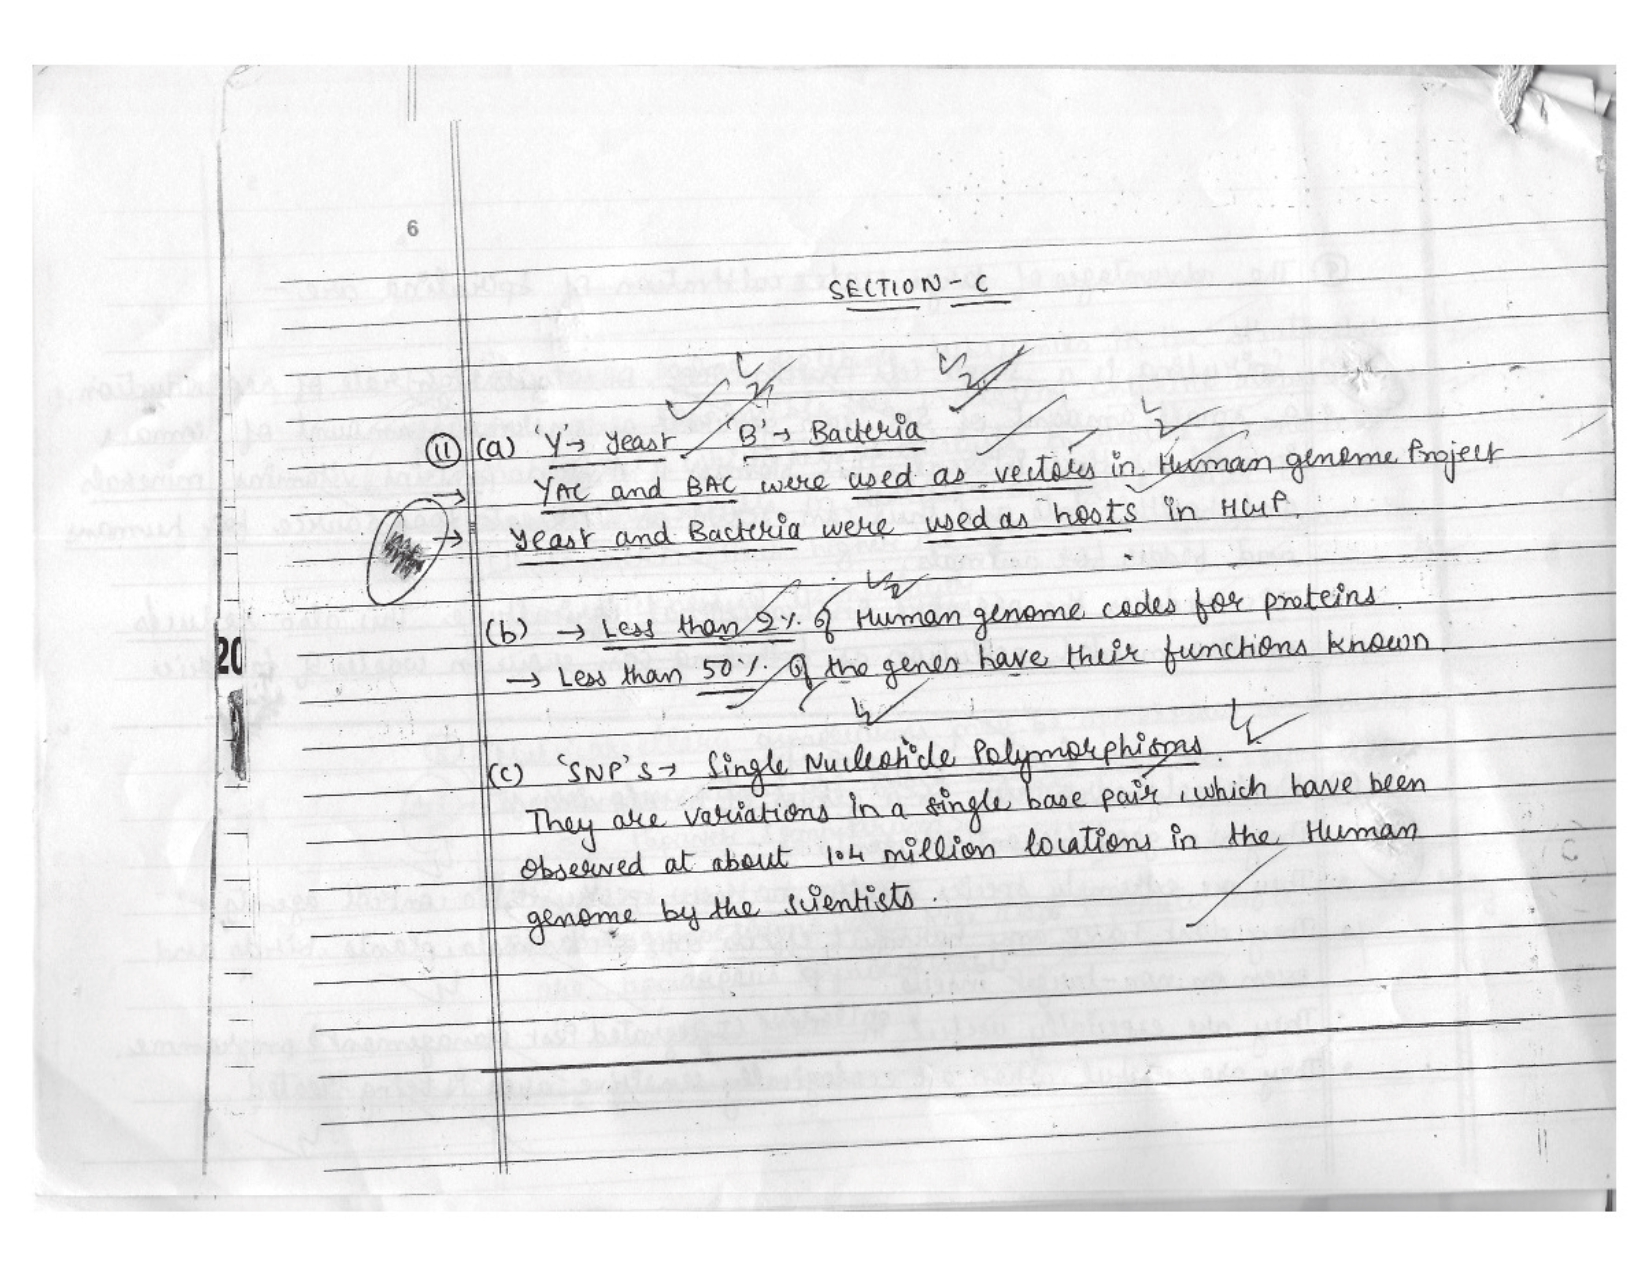 6
SECTION - C
(11) (a) 'Y' → Yeast 'B' → Bacteria
→ YAC and BAC were used as vectors in Human genome Project
→ Yeast and Bacteria were used as hosts in HGP
(b) → Less than 2% of Human genome codes for proteins.
→ Less than 50% of the genes have their functions known.
(c) 'SNP'S → Single Nucleotide Polymorphisms.
They are variations in a single base pair, which have been
Observed at about 1.4 million locations in the Human
genome by the scientists.
20